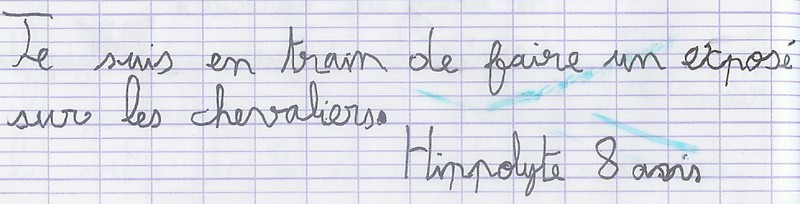 Je suis en train de faire un exposé
sur les chevaliers.
Hippolyte 8 ans